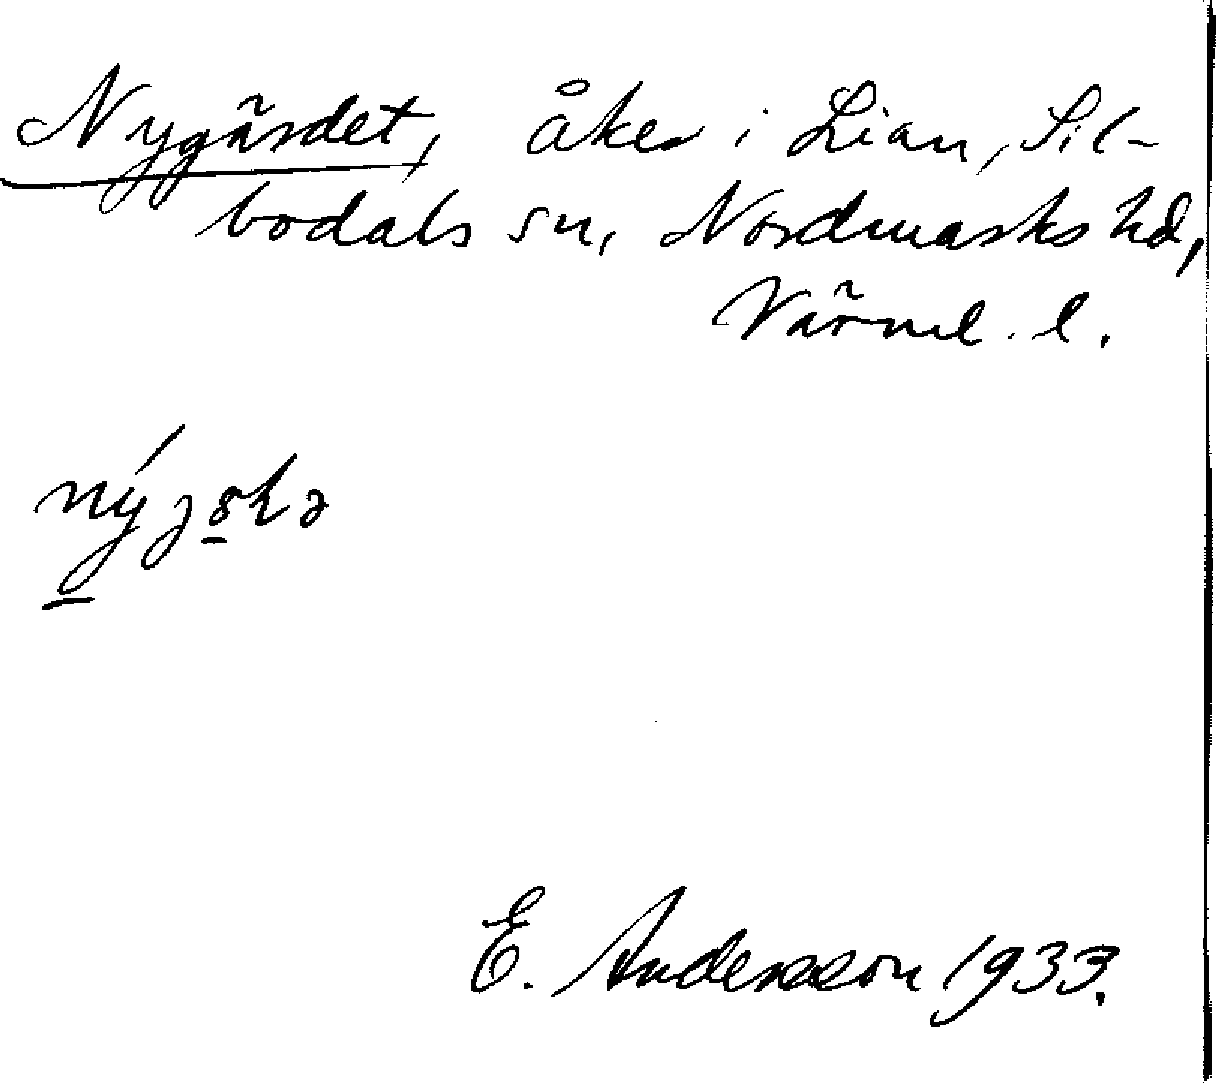 Nygärdet, åker i Lian, Sil-
bodals sn, Nordmarks hd,
Värml. l.
E. Andersson 1933.